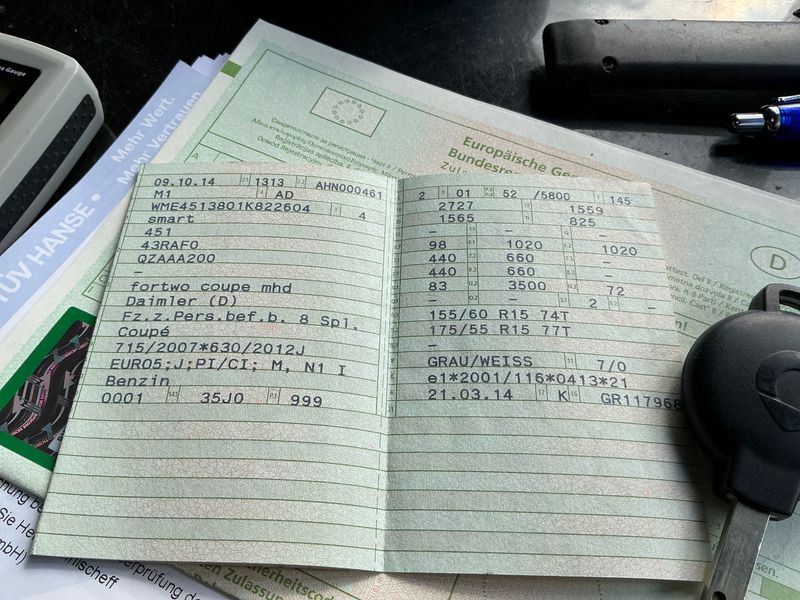 s Gauge
Mehr Wert.
Mehr Vertrauen
TÜV HANSE
Europäische Ge
Bundesre
zula
D
09.10.14 1313 AHN000461
M1 AD
WME4513801K822604 4
smart
451
43RAF0
QZAAA200
–
fortwo coupe mhd
Daimler (D)
Fz.z.Pers.bef.b. 8 Spl.
Coupé
715/2007*630/2012J
EURO5;J;PI/CI; M, N1 I
Benzin
0001 35J0 999
2 01 52 /5800 145
2727 1559
1565 825
– – –
98 1020 1020
440 660 –
440 660 –
83 3500 72
– – 2 –
155/60 R15 74T
175/55 R15 77T
–
GRAU/WEISS 7/0
e1*2001/116*0413*21
21.03.14 K GR117968
Sie He
mbH)
mischeff
erprüfung de
herheitscode
en Zulassu